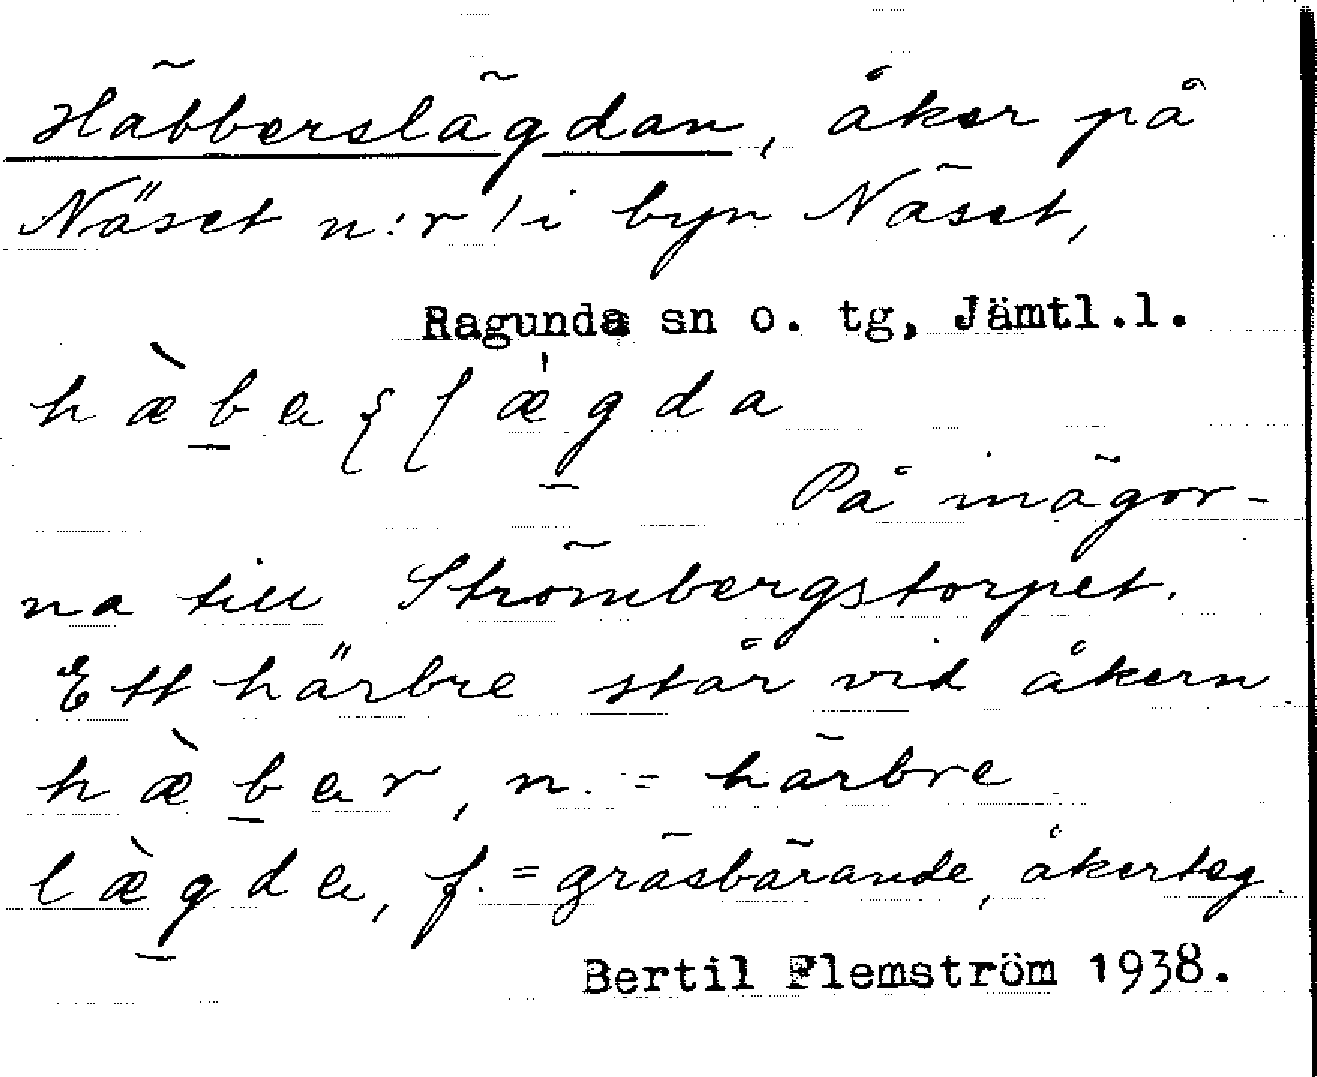 Häbberslägdan, åker på
Näset n:r 1 i byn Näset,
Ragunda sn o. tg, Jämtl.l.
hæ̀b̲aʂ ɭæ̍g̲da
På inägor-
na till Strömbergstorpet.
Ett härbre står vid åkern.
hæ̀b̲ar, n. = härbre
læ̀g̲da, f. = gräsbärande, åkerteg.
Bertil Flemström 1938.